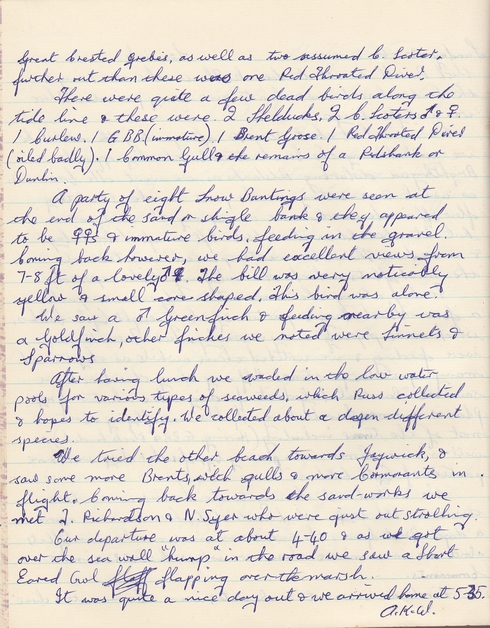 Great Crested Grebes, as well as two assumed C. Scoter,
further out than these was one Red Throated Diver.
There were quite a few dead birds along the
tide line & these were. 2 Shelducks, 2 C. Scoters ♂ & ♀.
1 Curlew. 1 G.B.B. (immature). 1 Brent Goose. 1 Red Throated Diver
(oiled badly). 1 Common Gull & the remains of a Redshank or
Dunlin.
A party of eight Snow Buntings were seen at
the end of the sand or shigle bank & they appeared
to be ♀♀s & immature birds, feeding in the gravel.
Coming back however, we had excellent views from
7-8 ft of a lovely ♂. The bill was very noticably
yellow & small cone shaped. This bird was alone.
We saw a ♂ Greenfinch & feeding nearby was
a Goldfinch, other finches we noted were Linnets &
Sparrows
After having lunch we waded in the low water
pools for various types of seaweeds, which Russ collected
& hopes to identify. We collected about a dozen different
species.
We tried the other beach towards Jaywick, &
saw some more Brents, which gulls & more Cormorants in
flight. Coming back towards the sand-works we
met J. Richardson & N. Syer who were just out strolling.
Our departure was at about 4-40 & as we got
over the sea wall "hump" in the road we saw a Short
Eared Owl flapping over the marsh.
It was quite a nice day out & we arrived home at 5-35.
A.K.W.